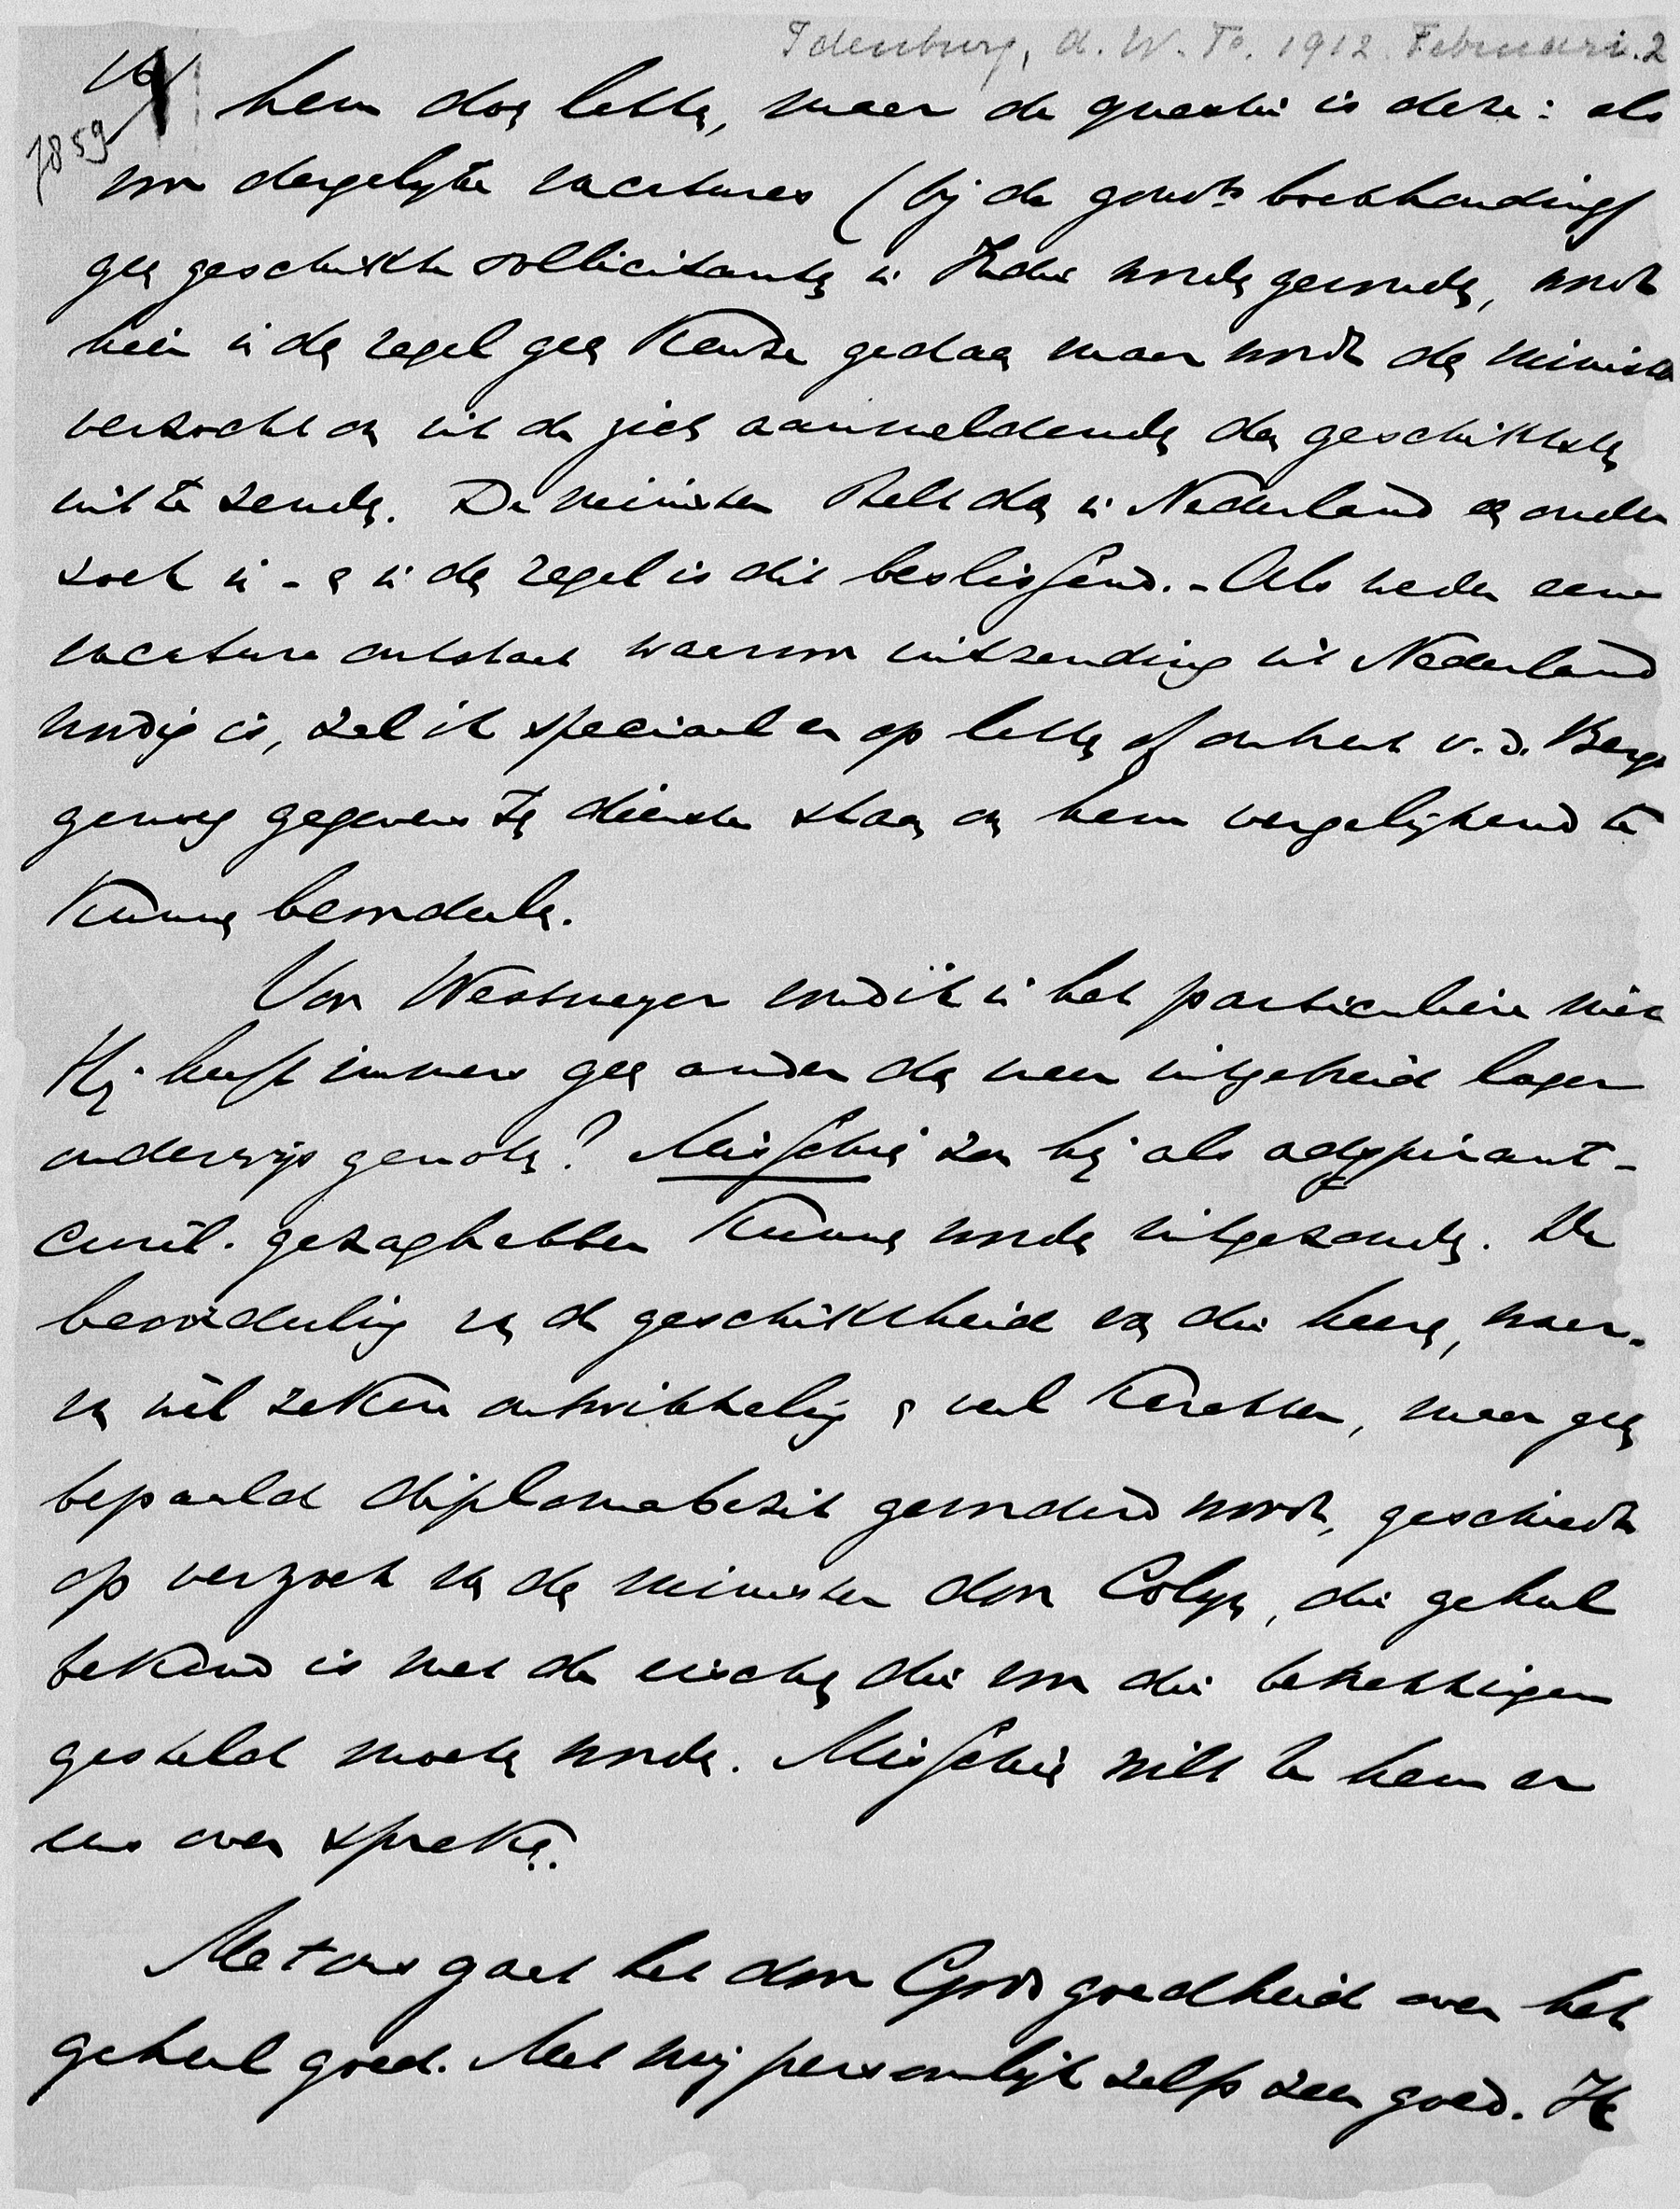 Idenburg, A. W. F. 1912 Februari. 2
16
7859
hem doen letten, maar de quaestie is deze: als
voor dergelijke vacatures (bij de gouvts boekhouding)
geen geschikte sollicitanten in Indië worden gevonden, wordt
hier in den regel geen keuze gedaan maar wordt den minister
verzocht om uit de zich aanmeldenden den geschiktsten
uit te zenden. De minister stelt dan in Nederland een onder
zoek in - en in den regel is dit beslissend. - Als weder eene
vacature ontstaat waarvoor uitzending uit Nederland
noodig is, zal ik speciaal er op letten of omtrent v. d. Berg
genoeg gegevens ten dienste staan om hem vergelijkend te
kunnen beoordeelen.
Voor Westmeyer vond ik in het particuliere niets
Hij heeft immers geen ander dan meer uitgebreid lager
onderwijs genoten? Misschien zou hij als adspirant-
civiel. gezaghebber kunnen worden uitgezonden. De
beoordeeling van de geschiktheid van die heeren, waar-
van wèl zekere ontwikkeling en veel karakter, maar geen
bepaald diplomabezit gevorderd wordt, geschiedt
op verzoek van den minister door Colijn, die geheel
bekend is met de eischen die voor die betrekkingen
gesteld moeten worden. Misschien wilt U hem er
eens over spreken.
Met ons gaat het door Gods goedheid over het
geheel goed. Met mij persoonlijk zelfs zeer goed. Ik